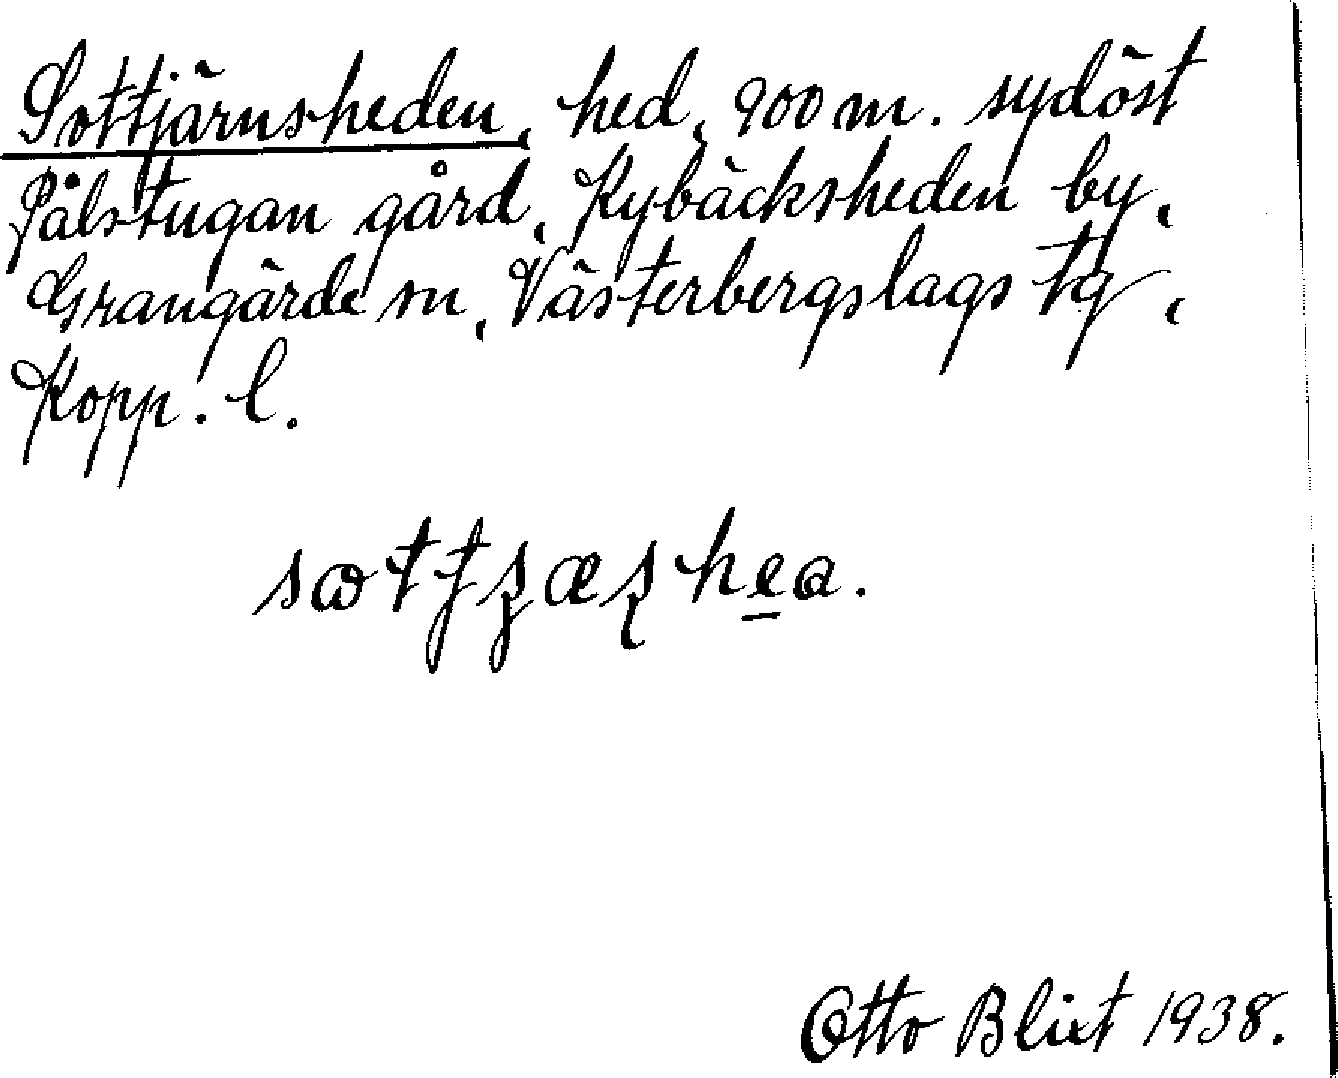 Sottjärnsheden, hed, 900 m. sydöst
Pålstugan gård, Kybäcksheden by,
Grangärde sn, Västerbergslags tg,
Kopp. l.
Otto Blixt 1938.